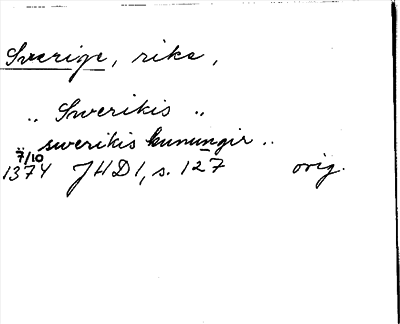 Sverige, rike,
.. Swerikis ..
.. swerikis kunungir ..
7/10
1374 JHD 1, s. 127 orig.